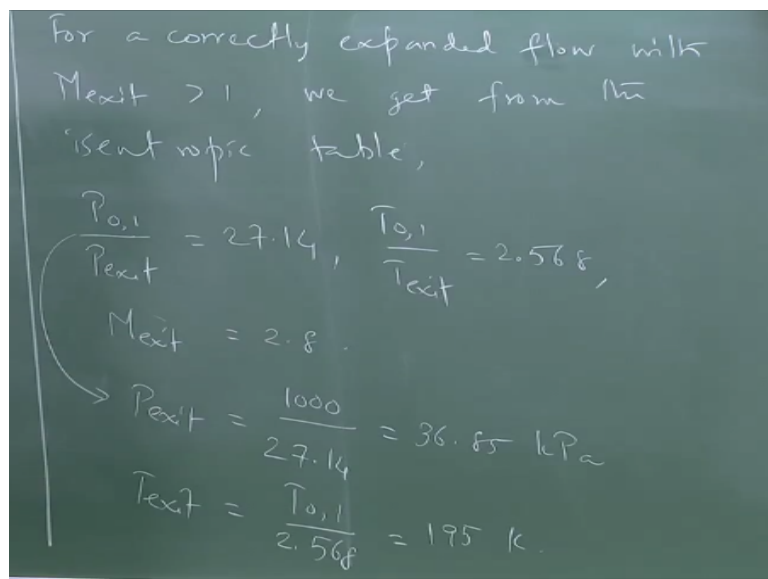 For a correctly expanded flow with
Mexit > 1, we get from the
isentropic table,
P0,1 / Pexit = 27.14, T0,1 / Texit = 2.568,
Mexit = 2.8.
Pexit = 1000 / 27.14 = 36.85 kPa
Texit = T0,1 / 2.568 = 195 K.